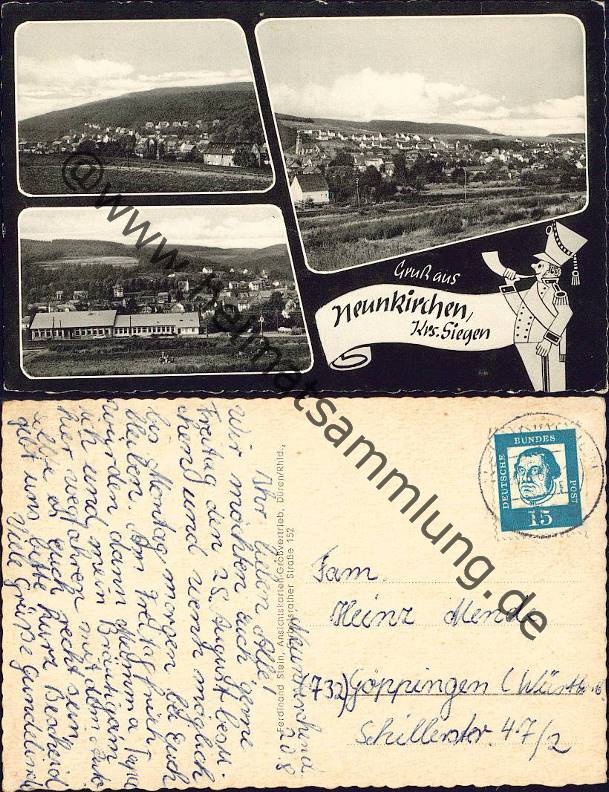 Gruß aus
Neunkirchen,
Krs. Siegen
@www.heimatsammlung.de
DEUTSCHE BUNDES POST
15
Ferdinand Stein, Ansichtskarten-Großvertrieb, Düren/Rhld.,
Straße 152
Fam.
Heinz Mende
(732) Göppingen (Württ.
Schillerstr. 47/2
20.8
Ihr lieben Alle!
Wir möchten euch gerne
Freitag den 25. August besu-
chen und wenn möglich
bis Montag morgen bei euch
bleiben. Am Freitag früh
würden dann Mamma Papa
ich und mein Bräutigam
hier wegfahren mit dem Auto
euch recht sein
gibt uns bitte kurz Bescheid
Viele Grüße